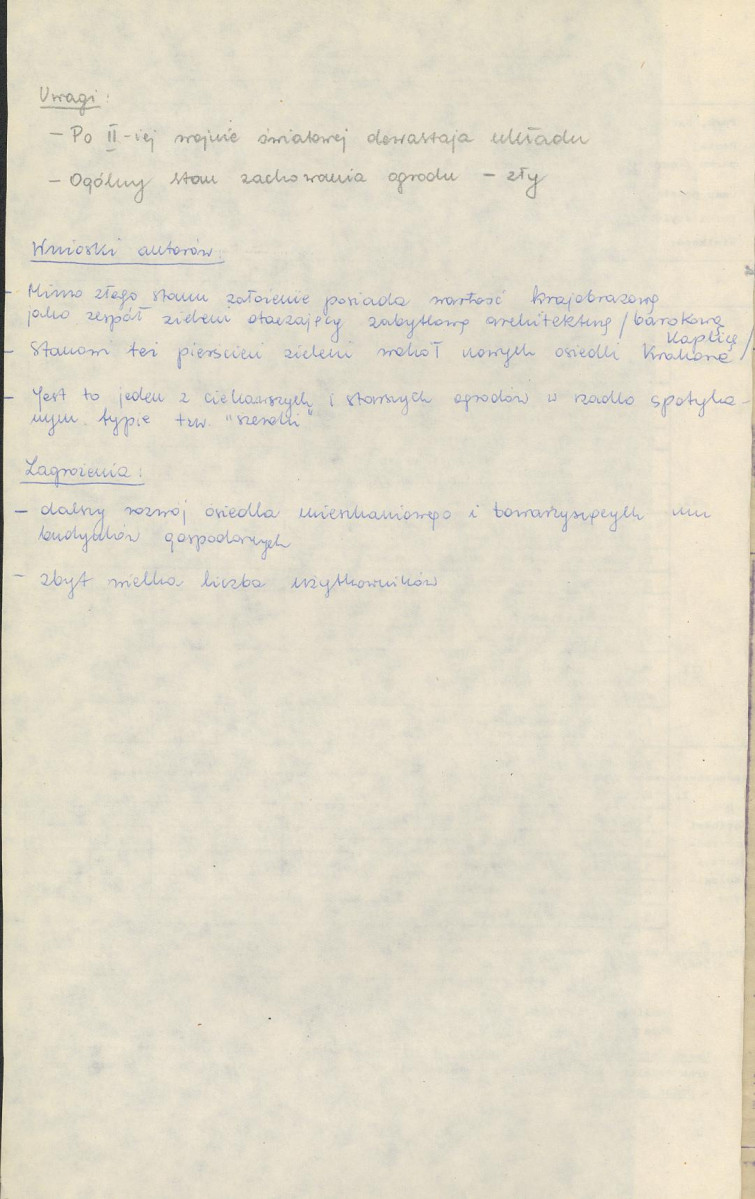 Uwagi:
– Po II-iej wojnie światowej dewastacja układu
– Ogólny stan zachowania ogrodu – zły
Wnioski autorów:
– Mimo złego stanu założenie posiada wartość krajobrazową
jako zespół zieleni otaczający zabytkową architekturę /barokową
kaplicę/
– Stanowi też pierścień zieleni wokół nowych osiedli Krakowa
– Jest to jeden z ciekawszych i starszych ogrodów w rzadko spotyka-
nym typie tzw.
Zagrożenia:
– dalszy rozwój osiedla mieszkaniowego i towarzyszących mu
budynków gospodarczych
– zbyt wielka liczba użytkowników